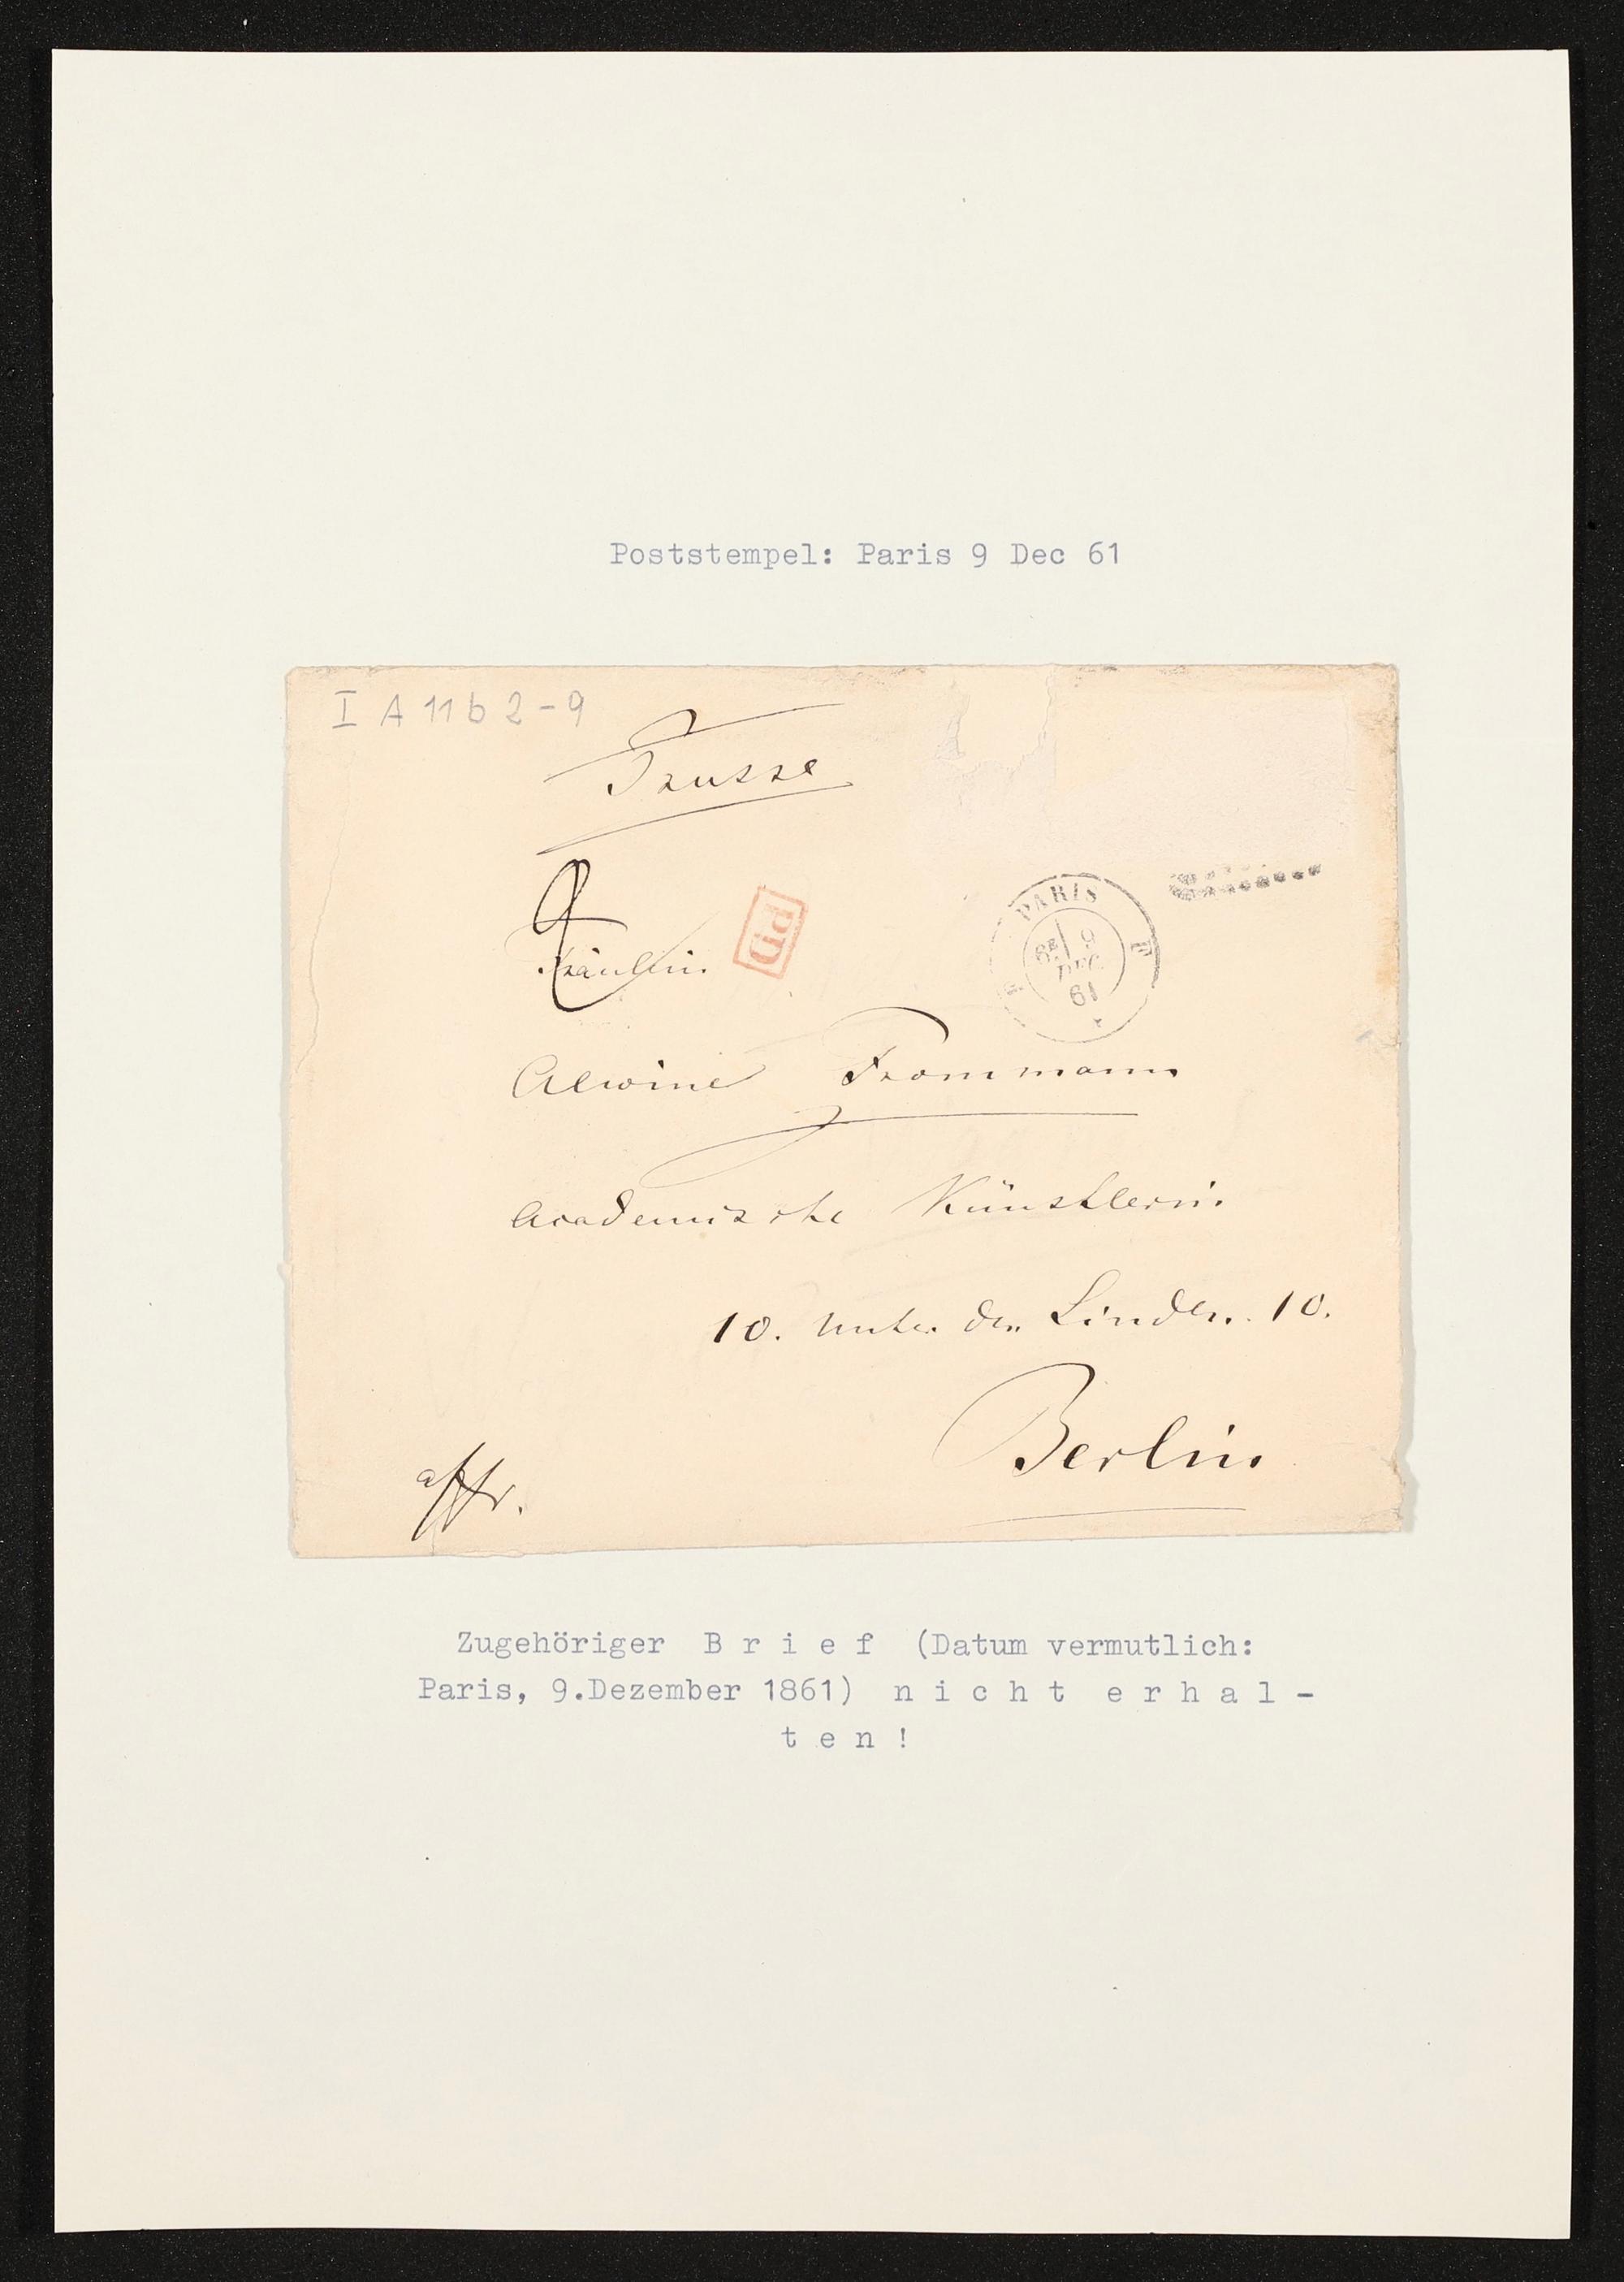 Poststempel: Paris 9 Dec 61
I A 11 b 2-9
Prusse
Fräulein
PD
PARIS
6E 9
DEC
61
Alwine Frommann
Academische Künstlerin
10. Unter den Linden. 10.
Berlin
affr.
Zugehöriger B r i e f (Datum vermutlich:
Paris, 9.Dezember 1861) n i c h t e r h a l -
t e n !